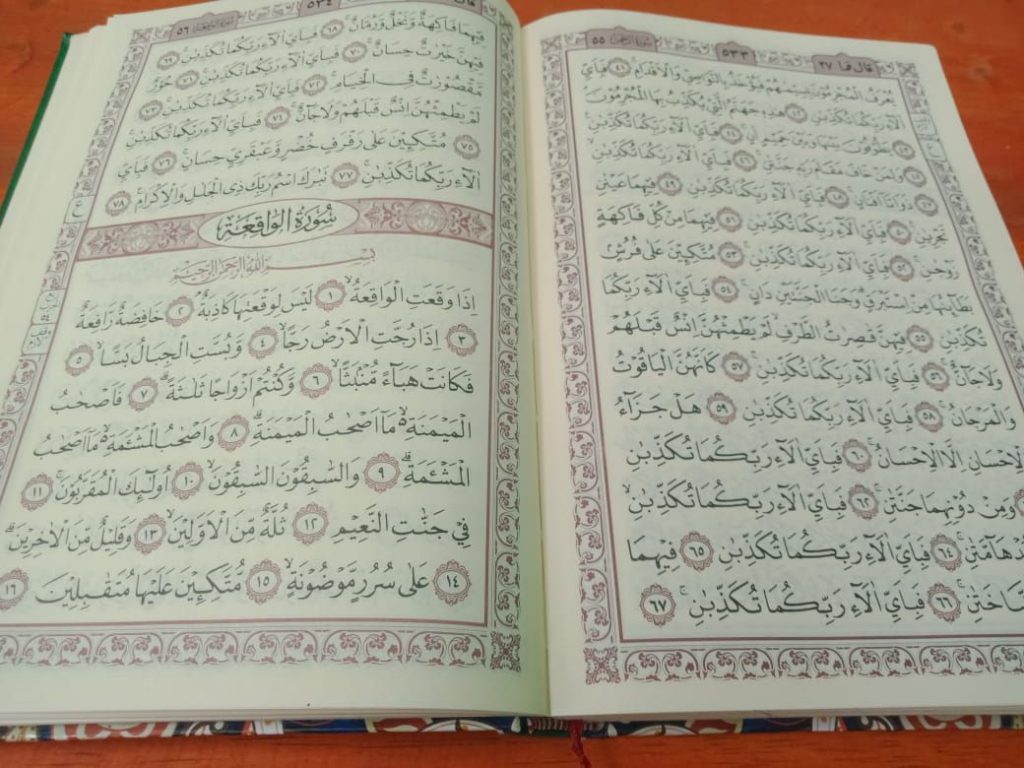 سورة الرحمن ٥٥
٥٣٣
قال فما ٢٧
يُعْرَفُ الْمُجْرِمُوْنَ بِسِيْمٰهُمْ فَيُؤْخَذُ بِالنَّوَاصِيْ وَالْاَقْدَامِۚ ٤١ فَبِاَيِّ
اٰلَاۤءِ رَبِّكُمَا تُكَذِّبٰنِ ٤٢ هٰذِهٖ جَهَنَّمُ الَّتِيْ يُكَذِّبُ بِهَا الْمُجْرِمُوْنَۘ
٤٣ يَطُوْفُوْنَ بَيْنَهَا وَبَيْنَ حَمِيْمٍ اٰنٍۚ ٤٤ فَبِاَيِّ اٰلَاۤءِ رَبِّكُمَا تُكَذِّبٰنِ
٤٥ وَلِمَنْ خَافَ مَقَامَ رَبِّهٖ جَنَّتٰنِۚ ٤٦ فَبِاَيِّ اٰلَاۤءِ رَبِّكُمَا تُكَذِّبٰنِۙ
٤٧ ذَوَاتَآ اَفْنَانٍۚ ٤٨ فَبِاَيِّ اٰلَاۤءِ رَبِّكُمَا تُكَذِّبٰنِ ٤٩ فِيْهِمَا عَيْنٰنِ
تَجْرِيٰنِۚ ٥٠ فَبِاَيِّ اٰلَاۤءِ رَبِّكُمَا تُكَذِّبٰنِ ٥١ فِيْهِمَا مِنْ كُلِّ فَاكِهَةٍ
زَوْجٰنِۚ ٥٢ فَبِاَيِّ اٰلَاۤءِ رَبِّكُمَا تُكَذِّبٰنِۚ ٥٣ مُتَّكِـِٕيْنَ عَلٰى فُرُشٍۢ
بَطَاۤىِٕنُهَا مِنْ اِسْتَبْرَقٍۗ وَجَنَا الْجَنَّتَيْنِ دَانٍۚ ٥٤ فَبِاَيِّ اٰلَاۤءِ رَبِّكُمَا
تُكَذِّبٰنِ ٥٥ فِيْهِنَّ قٰصِرٰتُ الطَّرْفِۙ لَمْ يَطْمِثْهُنَّ اِنْسٌ قَبْلَهُمْ
وَلَا جَاۤنٌّۚ ٥٦ فَبِاَيِّ اٰلَاۤءِ رَبِّكُمَا تُكَذِّبٰنِۚ ٥٧ كَاَنَّهُنَّ الْيَاقُوْتُ
وَالْمَرْجَانُۚ ٥٨ فَبِاَيِّ اٰلَاۤءِ رَبِّكُمَا تُكَذِّبٰنِ ٥٩ هَلْ جَزَاۤءُ
الْاِحْسَانِ اِلَّا الْاِحْسَانُۚ ٦٠ فَبِاَيِّ اٰلَاۤءِ رَبِّكُمَا تُكَذِّبٰنِ
وَمِنْ دُوْنِهِمَا جَنَّتٰنِۚ ٦٢ فَبِاَيِّ اٰلَاۤءِ رَبِّكُمَا تُكَذِّبٰنِۙ
مُدْهَاۤمَّتٰنِۚ ٦٤ فَبِاَيِّ اٰلَاۤءِ رَبِّكُمَا تُكَذِّبٰنِۚ ٦٥ فِيْهِمَا
نَضَّاخَتٰنِۚ ٦٦ فَبِاَيِّ اٰلَاۤءِ رَبِّكُمَا تُكَذِّبٰنِۚ ٦٧
سورة الواقعة ٥٦
٥٣٤
قال
فِيْهِمَا فَاكِهَةٌ وَّنَخْلٌ وَّرُمَّانٌۚ ٦٨ فَبِاَيِّ اٰلَاۤءِ رَبِّكُمَا تُكَذِّبٰنِۚ ٦٩
فِيْهِنَّ خَيْرٰتٌ حِسَانٌۚ ٧٠ فَبِاَيِّ اٰلَاۤءِ رَبِّكُمَا تُكَذِّبٰنِۚ ٧١ حُوْرٌ
مَّقْصُوْرٰتٌ فِى الْخِيَامِۚ ٧٢ فَبِاَيِّ اٰلَاۤءِ رَبِّكُمَا تُكَذِّبٰنِۚ ٧٣
لَمْ يَطْمِثْهُنَّ اِنْسٌ قَبْلَهُمْ وَلَا جَاۤنٌّۚ ٧٤ فَبِاَيِّ اٰلَاۤءِ رَبِّكُمَا تُكَذِّبٰنِۚ
٧٥ مُتَّكِـِٕيْنَ عَلٰى رَفْرَفٍ خُضْرٍ وَّعَبْقَرِيٍّ حِسَانٍۚ ٧٦ فَبِاَيِّ
اٰلَاۤءِ رَبِّكُمَا تُكَذِّبٰنِ ٧٧ تَبٰرَكَ اسْمُ رَبِّكَ ذِى الْجَلٰلِ وَالْاِكْرَامِ ٧٨
سُوْرَةُ الْوَاقِعَةِ
بِسْمِ اللّٰهِ الرَّحْمٰنِ الرَّحِيْمِ
اِذَا وَقَعَتِ الْوَاقِعَةُۙ ١ لَيْسَ لِوَقْعَتِهَا كَاذِبَةٌۘ ٢ خَافِضَةٌ رَّافِعَةٌ
٣ اِذَا رُجَّتِ الْاَرْضُ رَجًّاۙ ٤ وَّبُسَّتِ الْجِبَالُ بَسًّاۙ ٥
فَكَانَتْ هَبَاۤءً مُّنْۢبَثًّاۙ ٦ وَّكُنْتُمْ اَزْوَاجًا ثَلٰثَةًۗ ٧ فَاَصْحٰبُ
الْمَيْمَنَةِ ەۙ مَآ اَصْحٰبُ الْمَيْمَنَةِۗ ٨ وَاَصْحٰبُ الْمَشْـَٔمَةِ ەۙ مَآ اَصْحٰبُ
الْمَشْـَٔمَةِۗ ٩ وَالسّٰبِقُوْنَ السّٰبِقُوْنَۙ ١٠ اُولٰۤىِٕكَ الْمُقَرَّبُوْنَۚ ١١
فِيْ جَنّٰتِ النَّعِيْمِ ١٢ ثُلَّةٌ مِّنَ الْاَوَّلِيْنَۙ ١٣ وَقَلِيْلٌ مِّنَ الْاٰخِرِيْنَۗ
١٤ عَلٰى سُرُرٍ مَّوْضُوْنَةٍۙ ١٥ مُّتَّكِـِٕيْنَ عَلَيْهَا مُتَقٰبِلِيْنَ ١٦